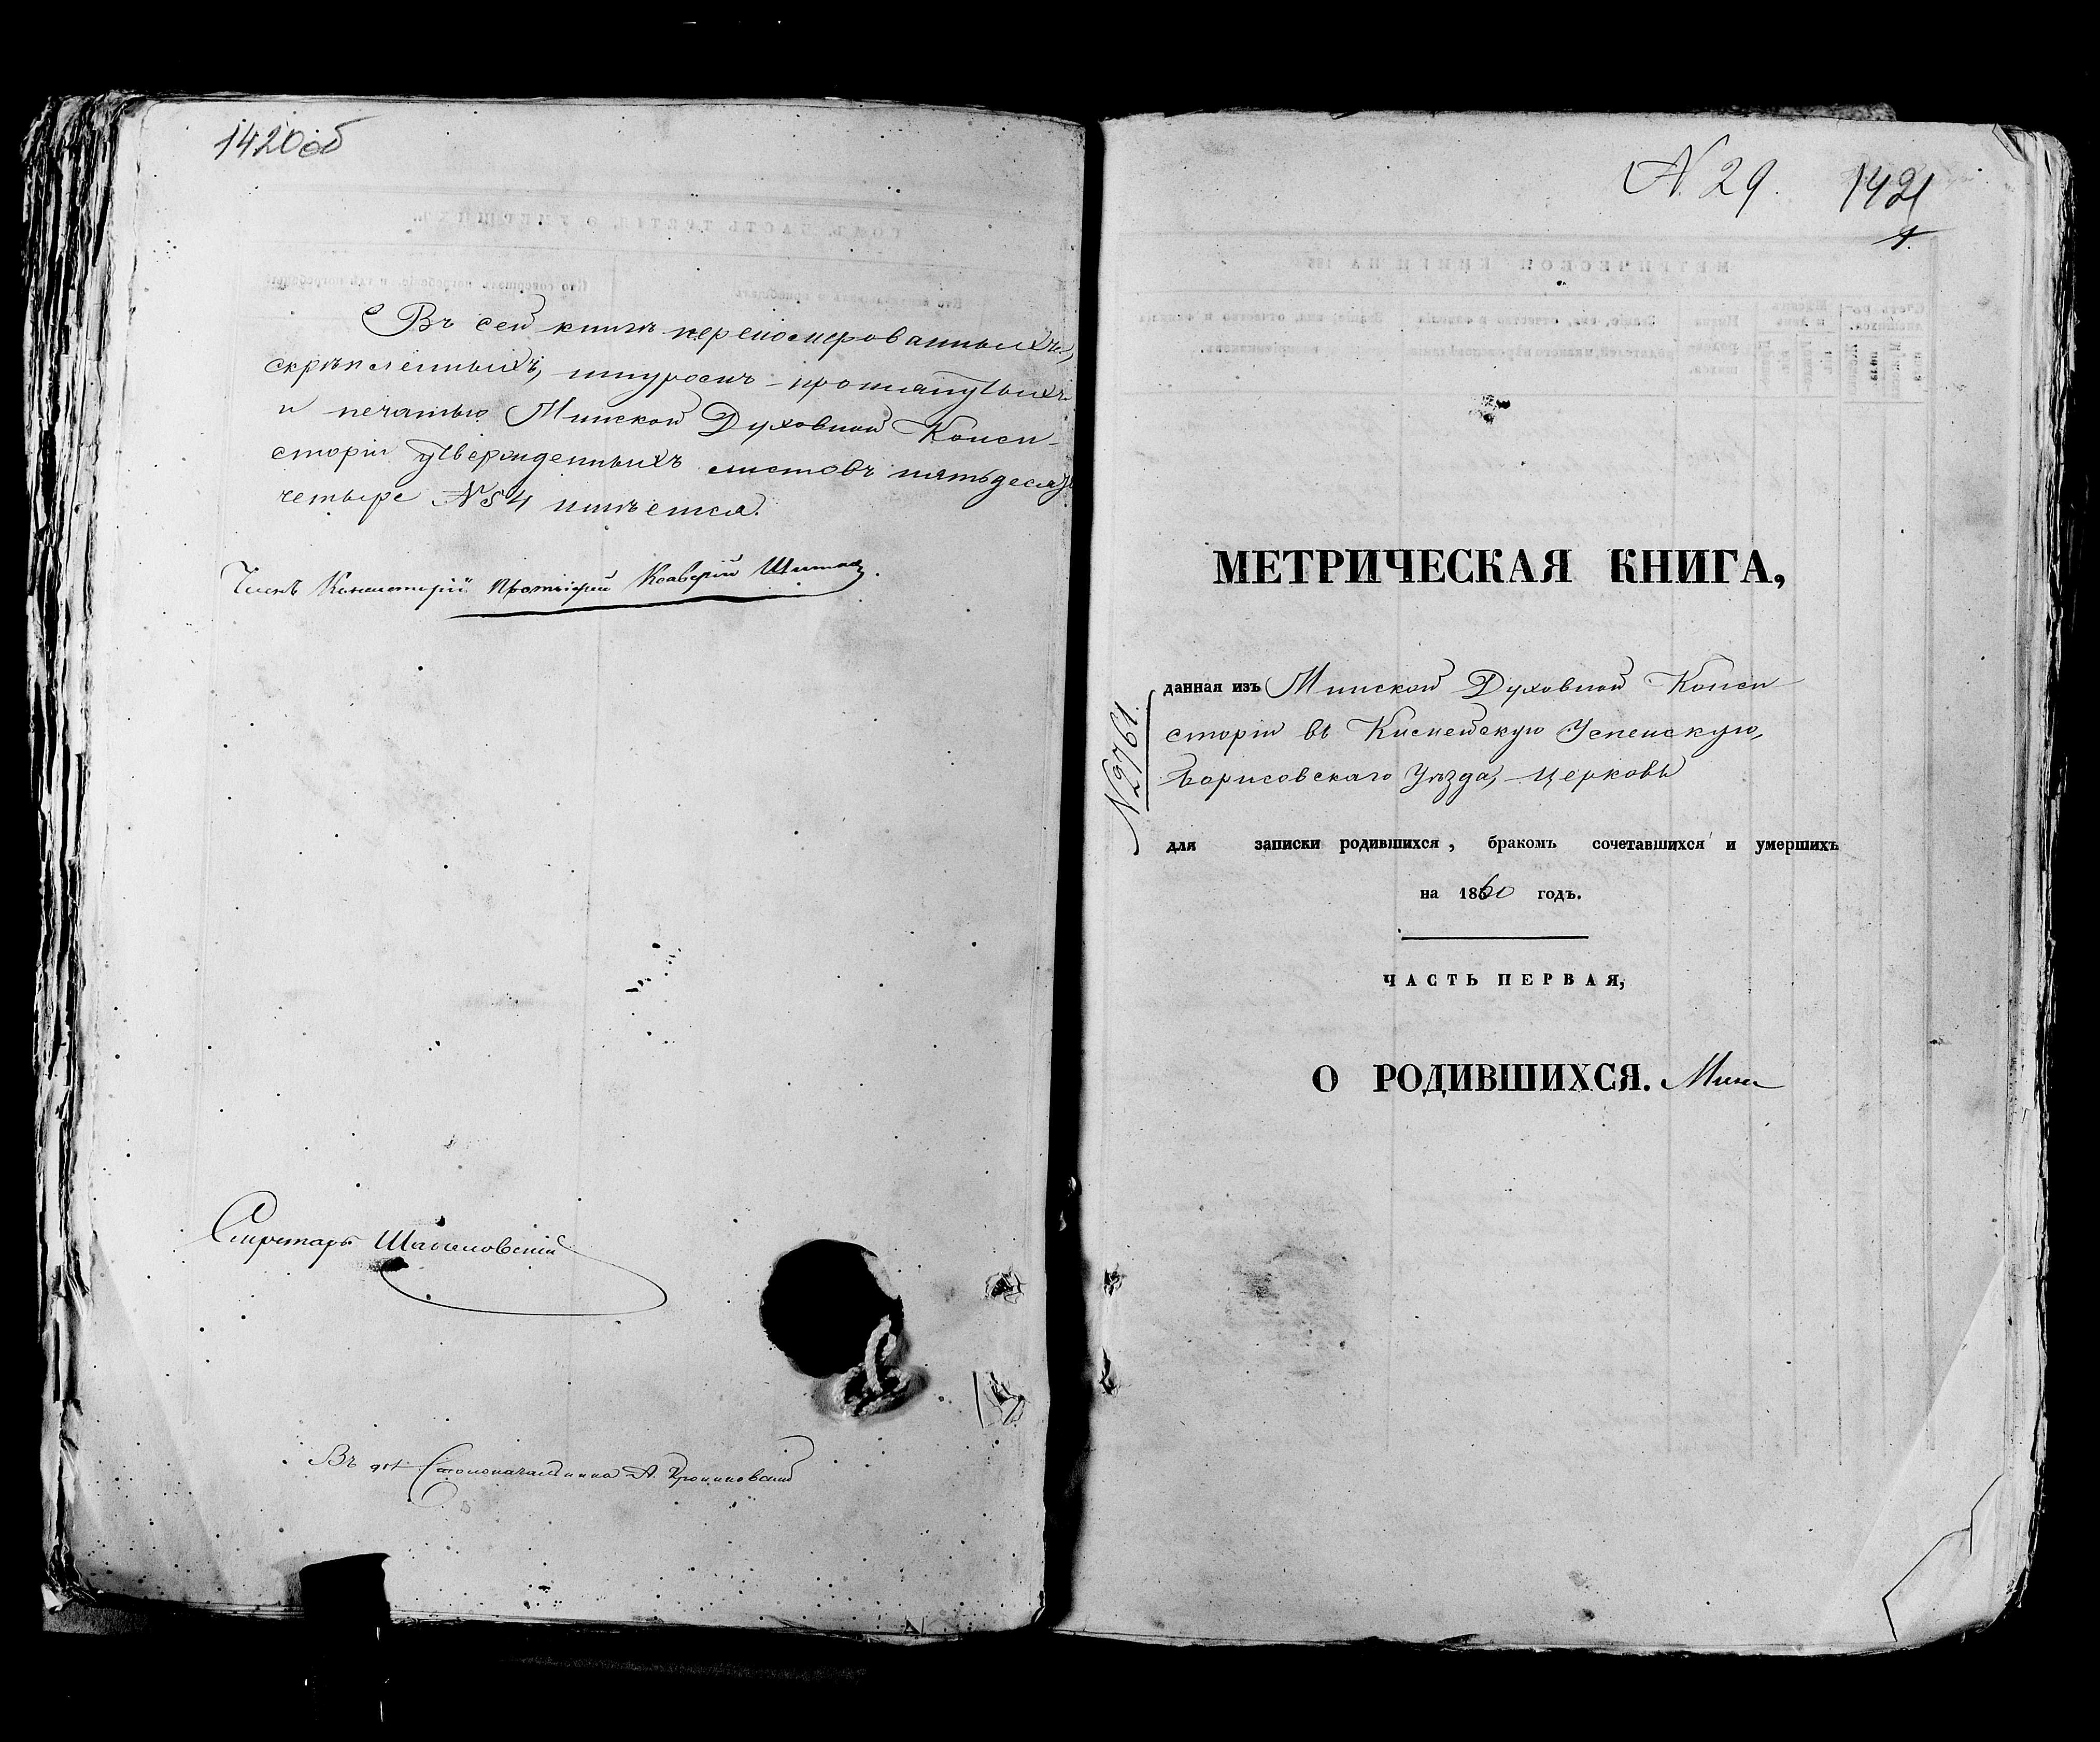 1420об
Въ сей книгѣ переномерованныхъ,
скрѣпленныхъ, шнуромъ протянутыхъ
и печатью Минской Духовной Конси-
сторіи утвержденныхъ листовъ пятьдесятъ
четыре № 54 имѣется.
Членъ Консисторіи Протоіерей Ксаверій
Секретарь
Въ д. Столоначальника А.
N. 29. 1421
1.
МЕТРИЧЕСКАЯ КНИГА,
данная изъ Минской Духовной Конси-
сторіи въ Кищейскую Успенскую,
Борисовскаго Уѣзда, церковь
N 2761.
для записки родившихся, бракомъ сочетавшихся и умершихъ
на 1860 годъ.
ЧАСТЬ ПЕРВАЯ,
О РОДИВШИХСЯ.